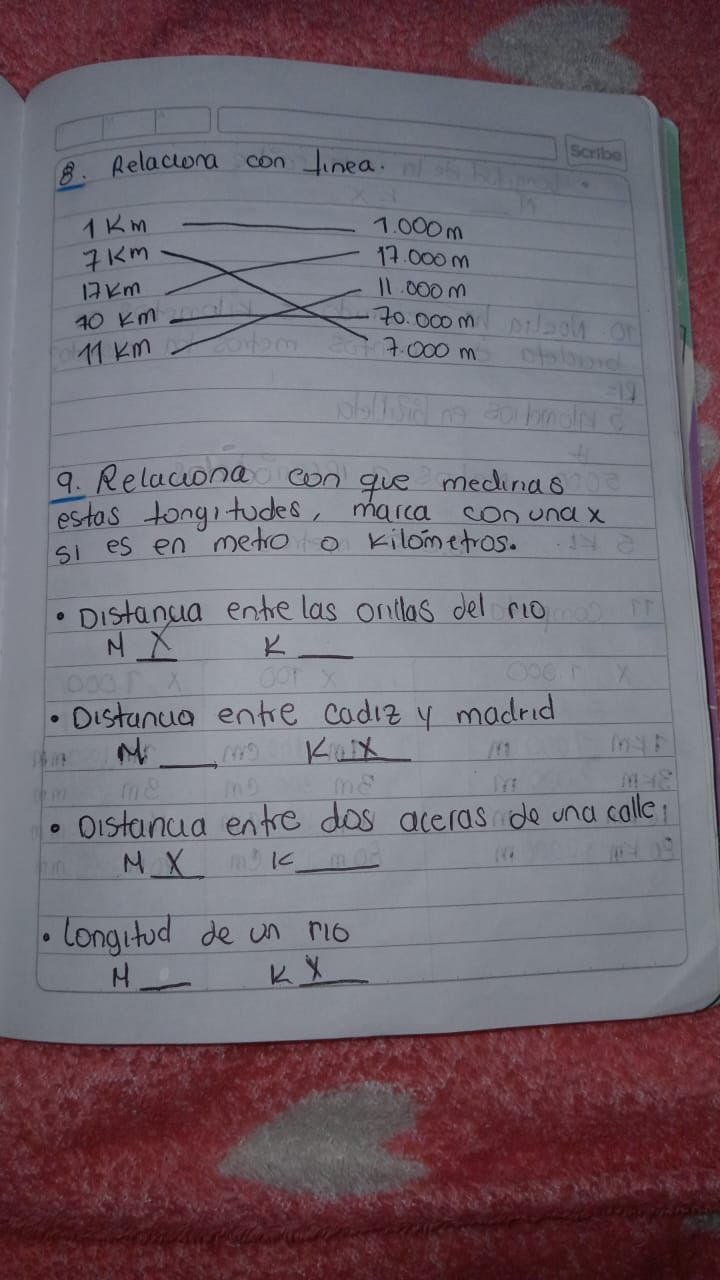 Scribe
8. Relaciona con linea.
1 Km 1.000m
7 Km 17.000m
17 Km 11.000m
70 Km 70.000m
11 Km 7.000 m
9. Relaciona con que medirias
estas longitudes, marca con una x
si es en metro o Kilómetros.
• Distancia entre las orillas del rio
M X K ___
• Distancia entre cadiz y madrid
M ___ K X
• Distancia entre dos aceras de una calle
M X K ___
• Longitud de un rio
M ___ K X